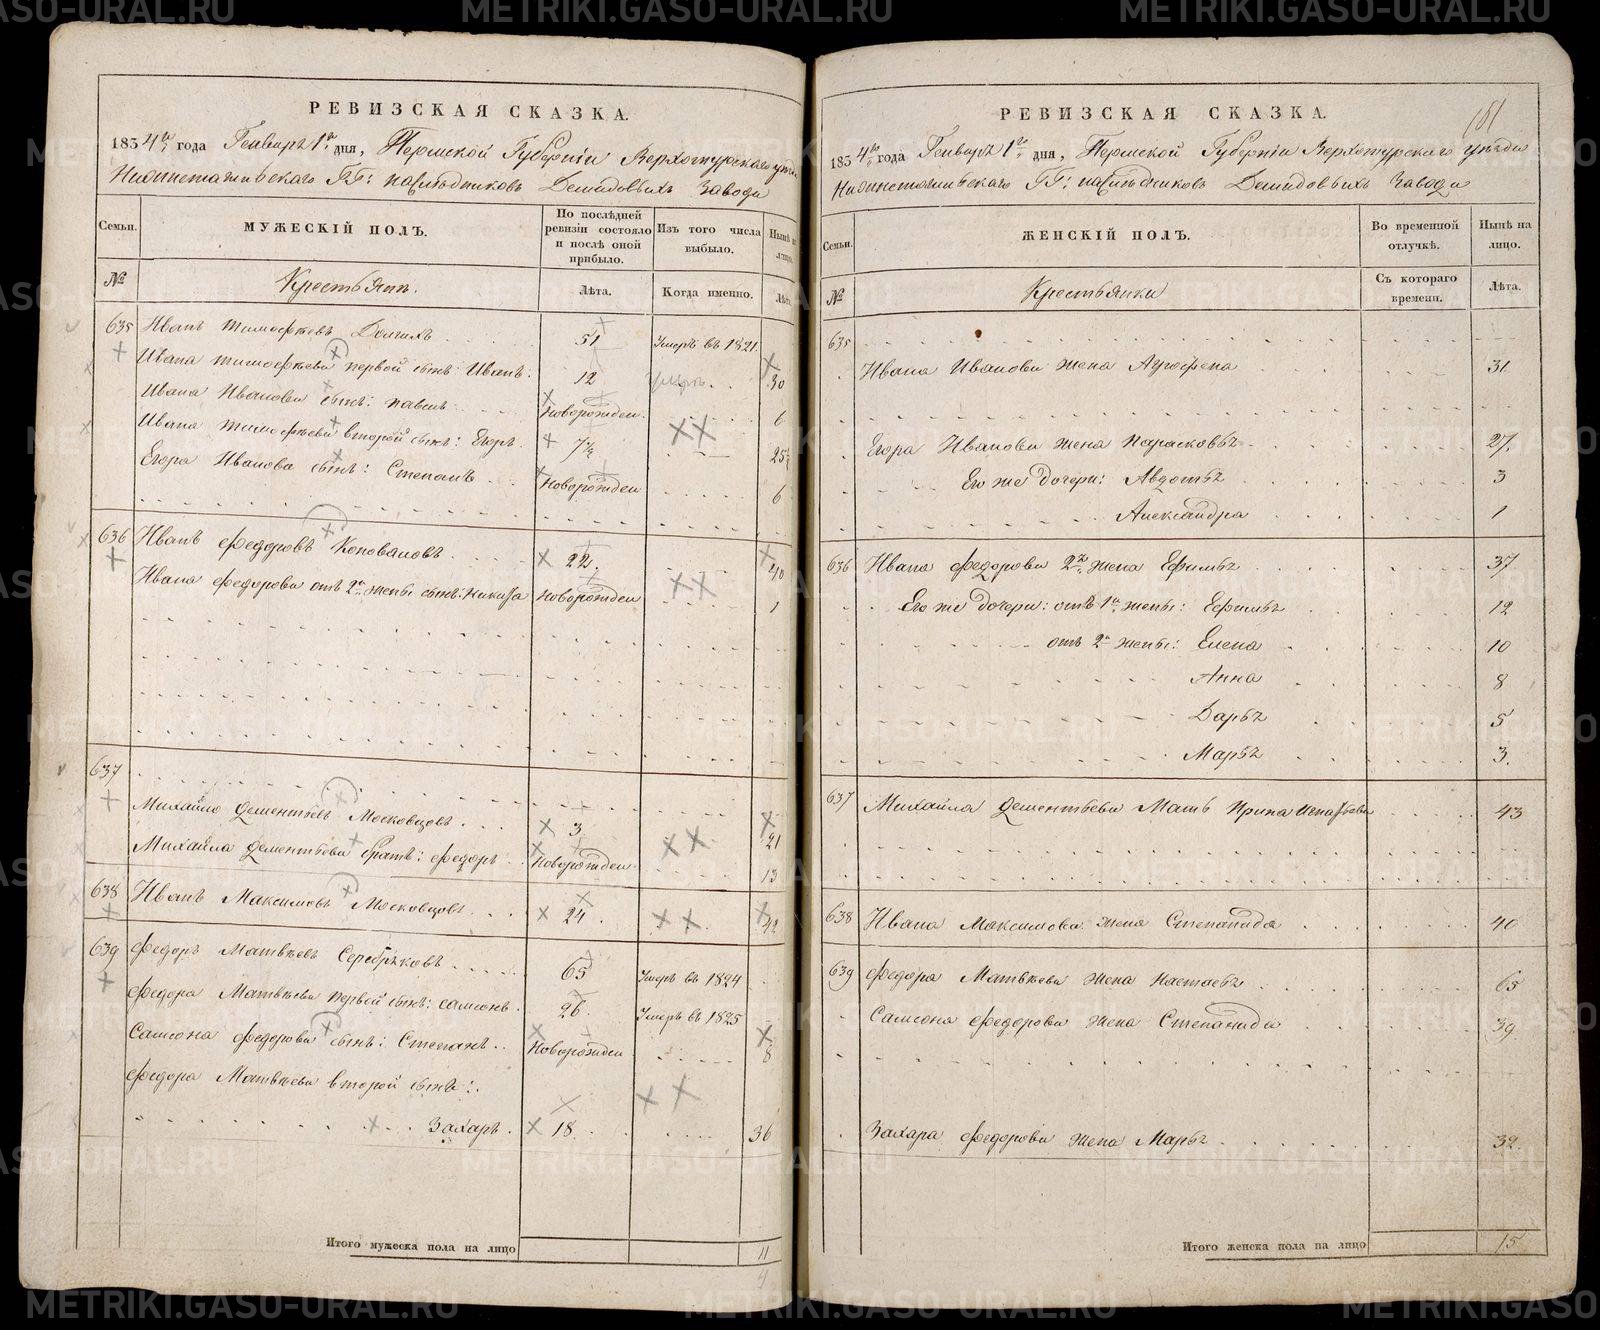 РЕВИЗСКАЯ СКАЗКА.
1834го года Генваря 1го дня, Пермской Губернiи Верхотурскаго уѣзда
Нижнетагильскаго ГГ: наслѣдниковъ Демидовыхъ Завода
Семьи. МУЖЕСКIЙ ПОЛЪ. По послѣдней ревизiи состояло и послѣ оной прибыло. Изъ того числа выбыло. Нынѣ на лицо.
№ Крестьяне. Лѣта. Когда именно. Лѣта
635 Иванъ Тимофѣевъ Долгихъ 51 Умеръ въ 1821
Ивана Тимофѣева первой сынъ: Иванъ. 12 30
Ивана Иванова сынъ: Павелъ Новорожден. 6
Ивана Тимофѣева второй сынъ: Егоръ. 7½ 25½
Егора Иванова сынъ: Степанъ Новорожден 6
636 Иванъ Федоровъ Коноваловъ 22. 40
Ивана Федорова отъ 2й жены сынъ: Никита Новорожден 1
637
Михайло Дементьевъ Московцовъ 3 21
Михайла Дементьева братъ: Федоръ Новорожден. 13
638 Иванъ Максимовъ Московцовъ 24. 42
639 Федоръ Матвѣевъ Серебряковъ 65 Умеръ въ 1824
Федора Матвѣева первой сынъ: Самсонъ. 26. Умеръ въ 1825
Самсона Федорова сынъ: Степанъ Новорожден 8
Федора Матвѣева второй сынъ:
Захаръ. 18. 36
Итого мужеска пола на лицо 11
181
РЕВИЗСКАЯ СКАЗКА.
1834го года Генваря 1го дня, Пермской Губернiи Верхотурскаго уѣзда
Нижнетагильскаго ГГ: наслѣдниковъ Демидовыхъ Завода
Семьи. ЖЕНСКIЙ ПОЛЪ. Во временной отлучкѣ. Нынѣ на лицо.
№ Крестьянки Съ котораго времени. Лѣта.
635
Ивана Иванова жена Агрофена 31
Егора Иванова жена Парасковья 27.
Его же дочери: Авдотья 3
Александра 1
636 Ивана Федорова 2я жена Ефимья 37
Его же дочери: отъ 1й жены: Ефимья 12
отъ 2й жены: Елена 10
Анна 8
Дарья 5
Марья 3.
637 Михайла Дементьева Мать Ирина Игнатьева 43
638 Ивана Максимова жена Степанида 40
639 Федора Матвѣева жена Настасья 65
Самсона Федорова жена Степанида 39
Захара Федорова жена Марья 32.
Итого женска пола на лицо 15
METRIKI.GASO-URAL.RU